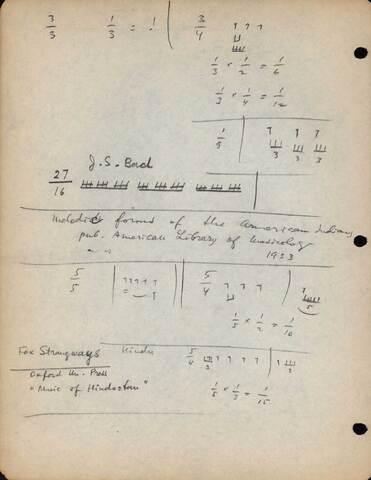 3/3 1/3 = ! 3/4
1/3 × 1/2 = 1/6
1/3 × 1/4 = 1/12
3 3 3
J.S. Bach
27/16
Melodic forms of the American Indians
pub. American Library of Musicology
" " 1933
5/5 5/4 5
1/5 × 1/2 = 1/10
Fox Strangways Hindu 5/4 3 3
Oxford Un. Press
"Music of Hindostan" 1/5 × 1/3 = 1/15